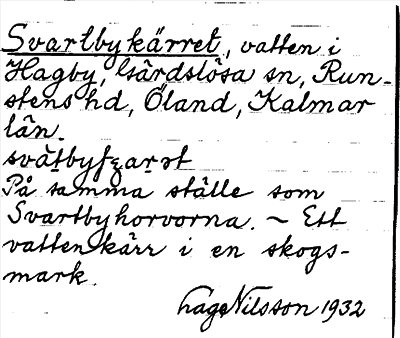 Svartbykärret, vatten i
Hagby, Gärdslösa sn, Run-
stens hd, Öland, Kalmar
län.
På samma ställe som
Svartbyhorvorna. ~ Ett
vattenkärr i en skogs-
mark.
Nilsson 1932